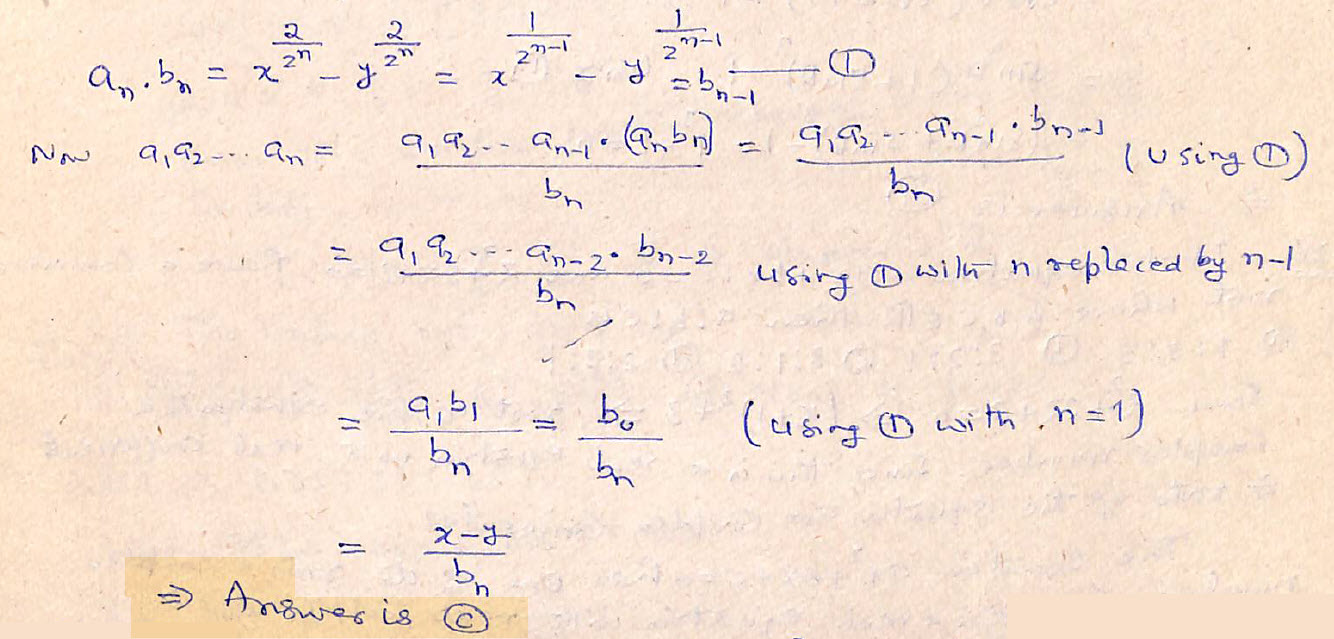 aₙ.bₙ = x^(2/2ⁿ) – y^(2/2ⁿ) = x^(1/2ⁿ⁻¹) – y^(1/2ⁿ⁻¹) = bₙ₋₁ —— ①
Now a₁a₂... aₙ = (a₁a₂.. aₙ₋₁.(aₙbₙ))/bₙ = (a₁a₂... aₙ₋₁.bₙ₋₁)/bₙ (using ①)
= (a₁a₂... aₙ₋₂.bₙ₋₂)/bₙ using ① with n replaced by n-1
= a₁b₁/bₙ = b₀/bₙ (using ① with n=1)
= (x-y)/bₙ
⇒ Answer is Ⓒ